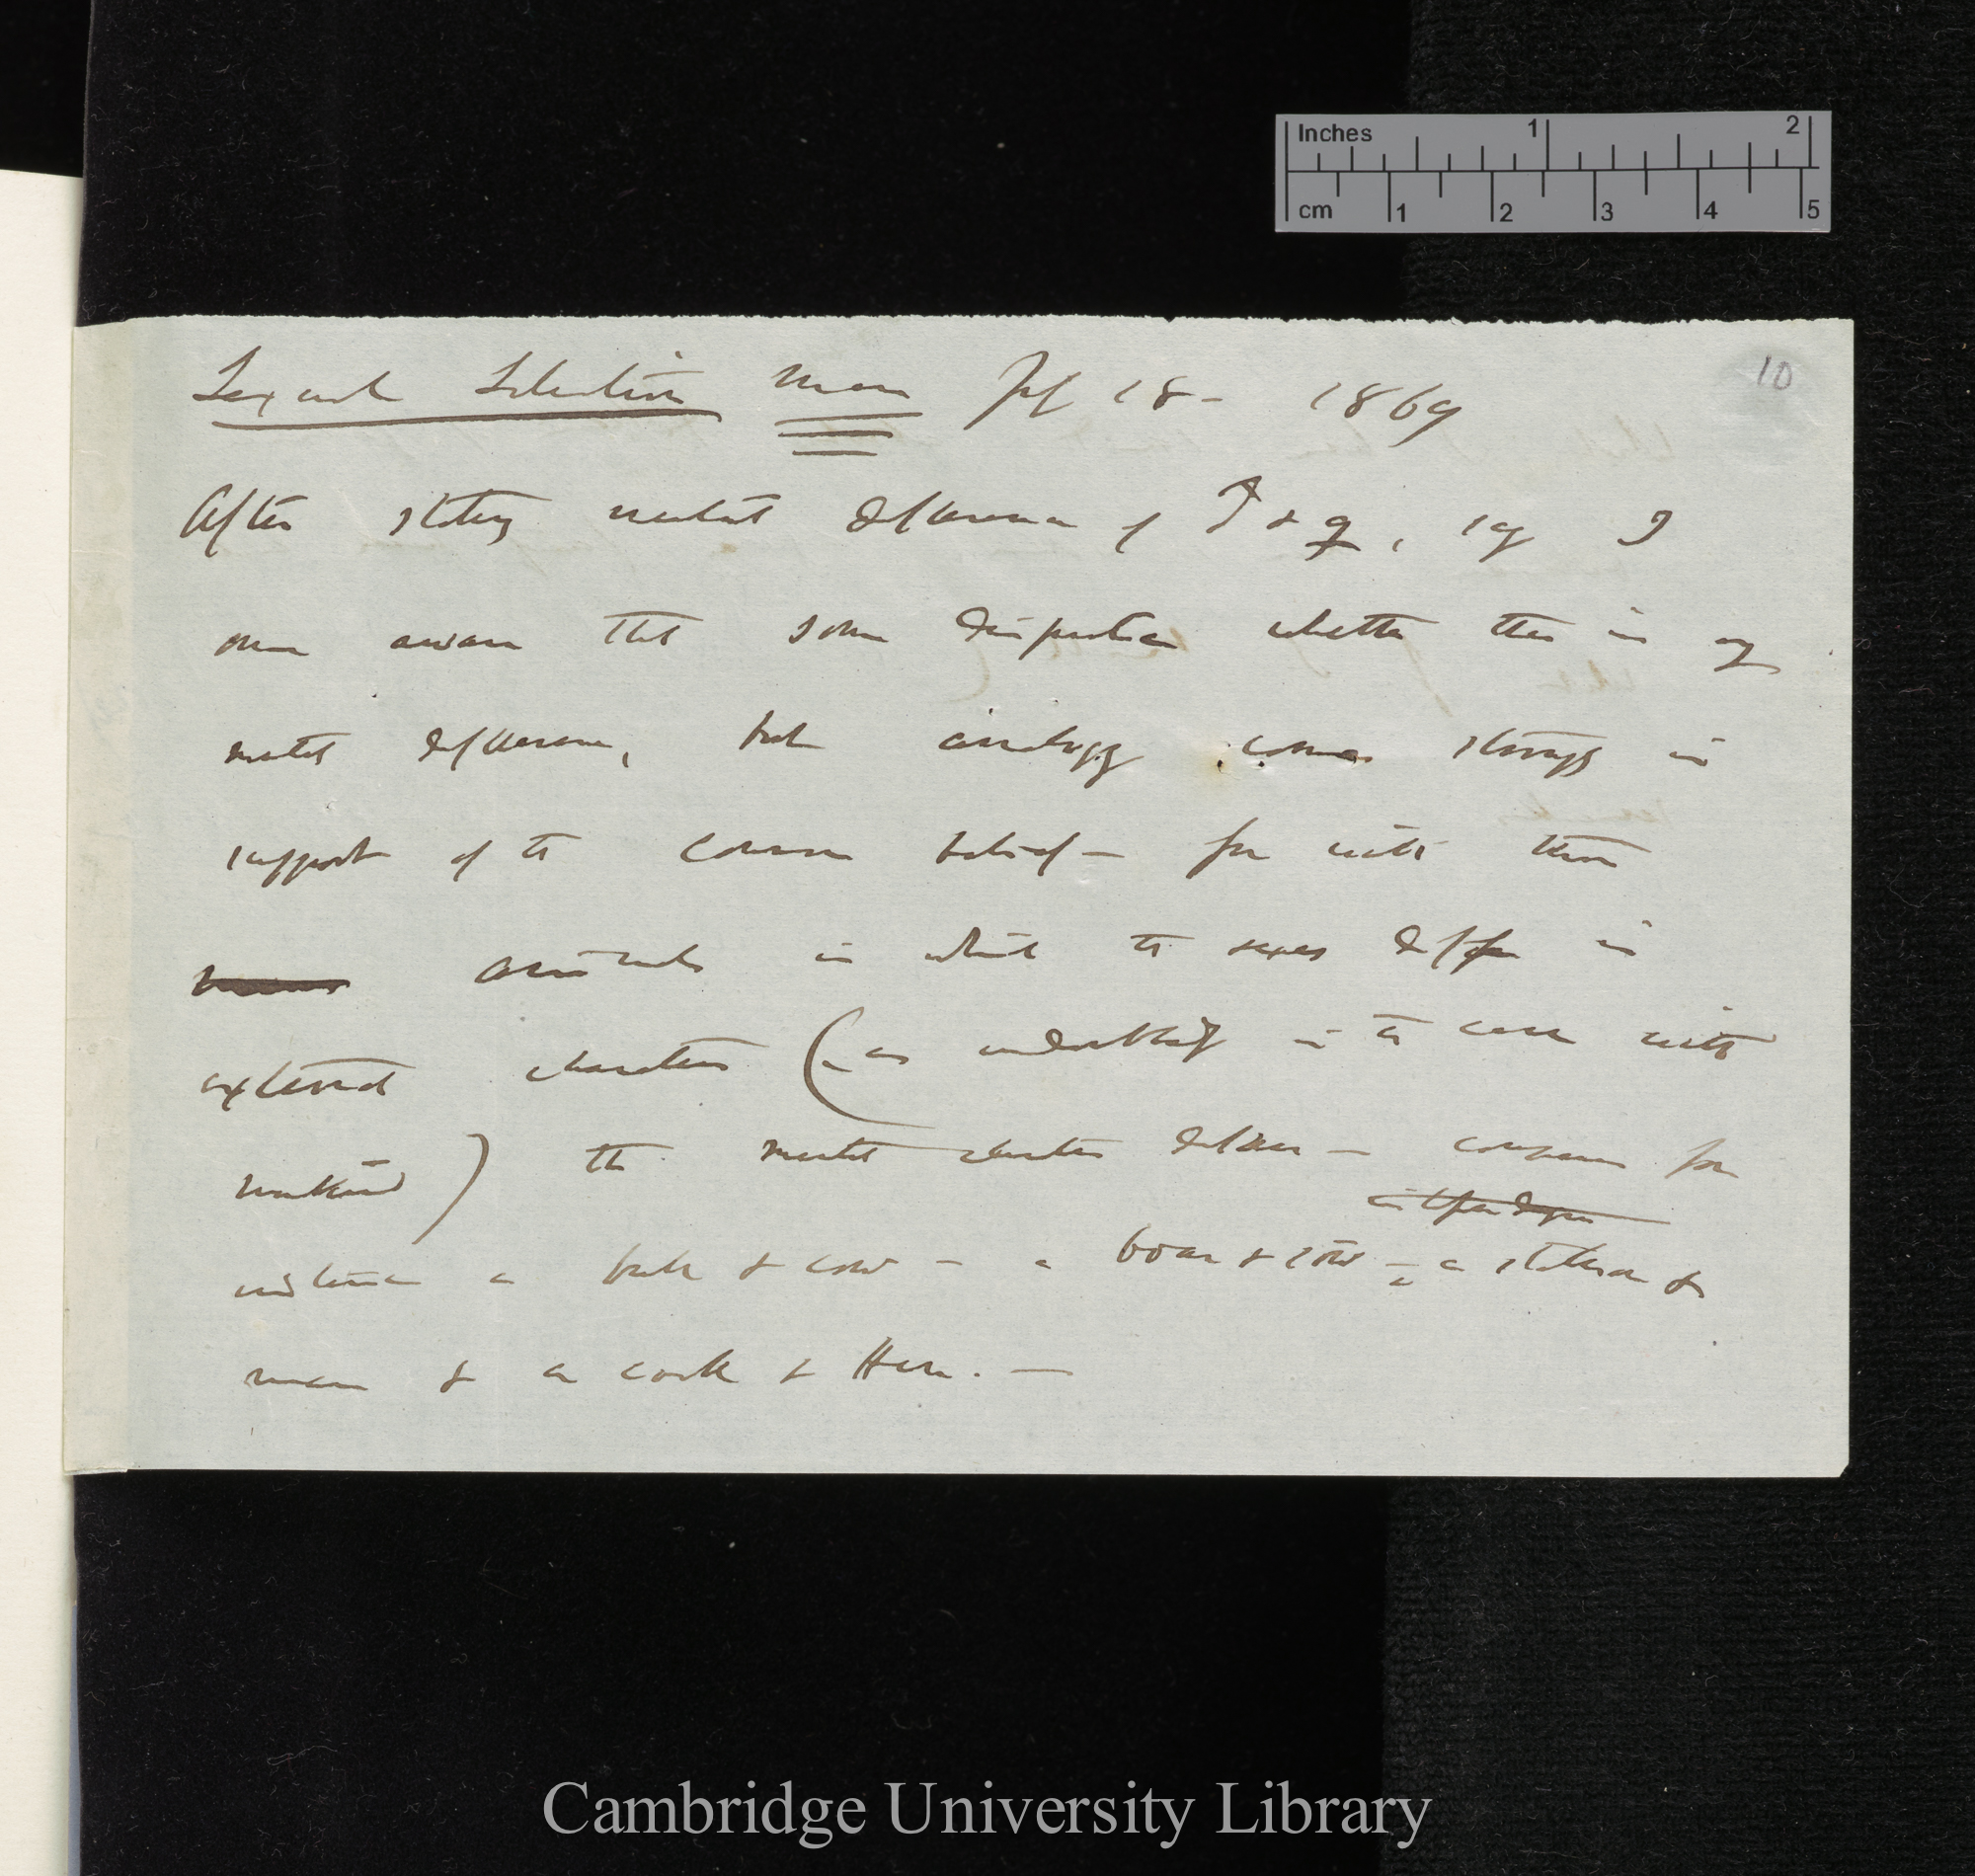 Inches 1 2
cm 1 2 3 4 5
10
Sexual Selection Man 18- 1869
After stating mental difference of ♂ & ♀, say I
am aware that some whether there is any
mental difference, but analogy comes strongly in
support of the common belief — for with those
animals in which the sexes differ in
external characters (as undoubtedly is the case with
mankind) the mental characters differ — compare for
instance a bull & cow — a boar & sow — a stallion &
mare & a cock & Hen. —
Cambridge University Library